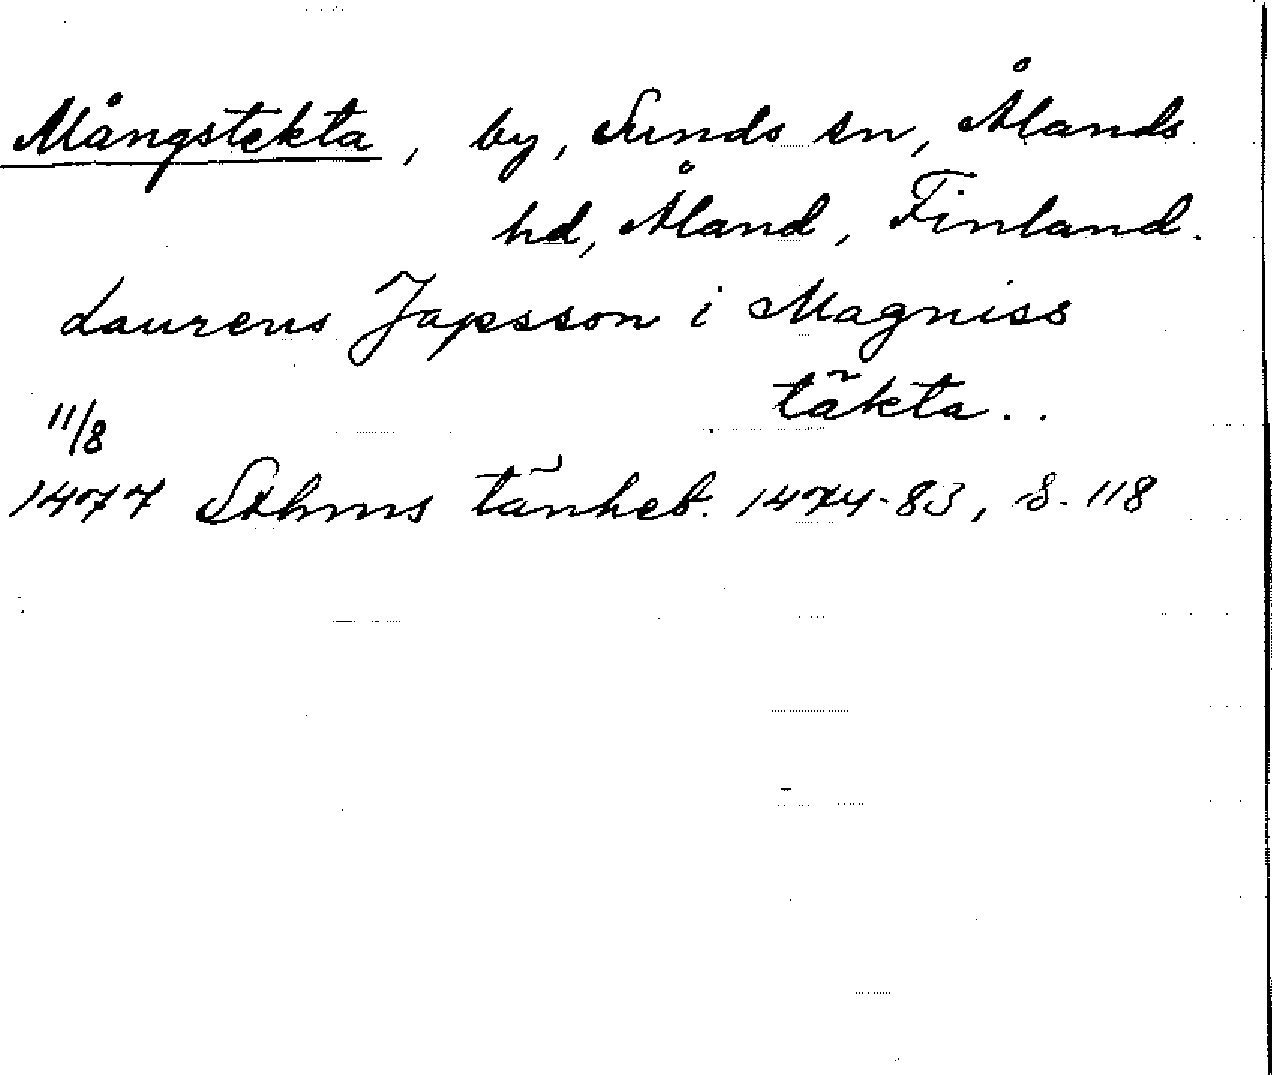 Mångstekta, by, Sunds sn, Ålands
hd, Åland, Finland.
Laurens Japsson i Magniss
täkta..
11/8
1477 Sthms tänkeb. 1474-83, s. 118